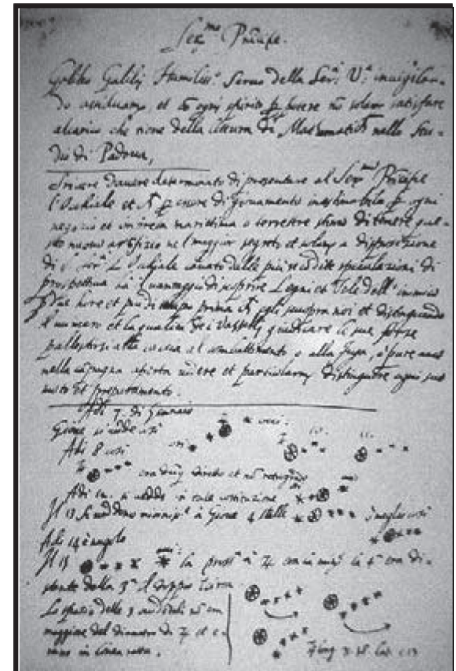 Ser.mo Principe.
Galileo Galilej Humiliss.o Servo della Ser. V.a invigilan-
do assiduamente, et cõ ogni spirito p potere nõ solam satisfare
alcarico che tiene della lettura di Mathematiche nello Stu-
dio di Padova,
Scrivere d'avere determinato di presentare al Ser.mo Principe
l'Occhiale et p essere di giovamento inestimabile p ogni
negozio et impresa marittima o terrestre stimo di tenere que-
sto nuovo artifizio nel maggior segreto et solamᵗᵉ a disposizione
di S. Ser.tà L'Occhiale cavato dalle più recondite speculazioni di
prospettiva ha il vantaggio di scoprire Legni et Vele dell'inimico
p due hore et più di tempo prima che egli scuopra noi et distinguendo
il numero et la qualità de i Vasselli giudicare le sue forze
pallestirsi alla caccia al combattimento o alla fuga, o pure anco
nella campagna aperta vedere et particolarmᵗᵉ distinguere ogni suo
moto et preparamento.
Adi 7. di Gennaio
Giove si vedde così
Adi 8 così
era diretto et nõ retrogrado
Adi 12. si vedde in tale costituzione
Il 13 si veddono vicinissᵉ a Giove 4 stelle meglio così
Adi 14 è nugolo
Il 15 la prossᵃ a ♃ era la minᵉ la 4ᵃ era di-
stante dalla 3ᵃ il doppio circa
Lo spazio delle 3 occidentali nõ era
maggiore del diametro di ♃ et e-
rano in linea retta.